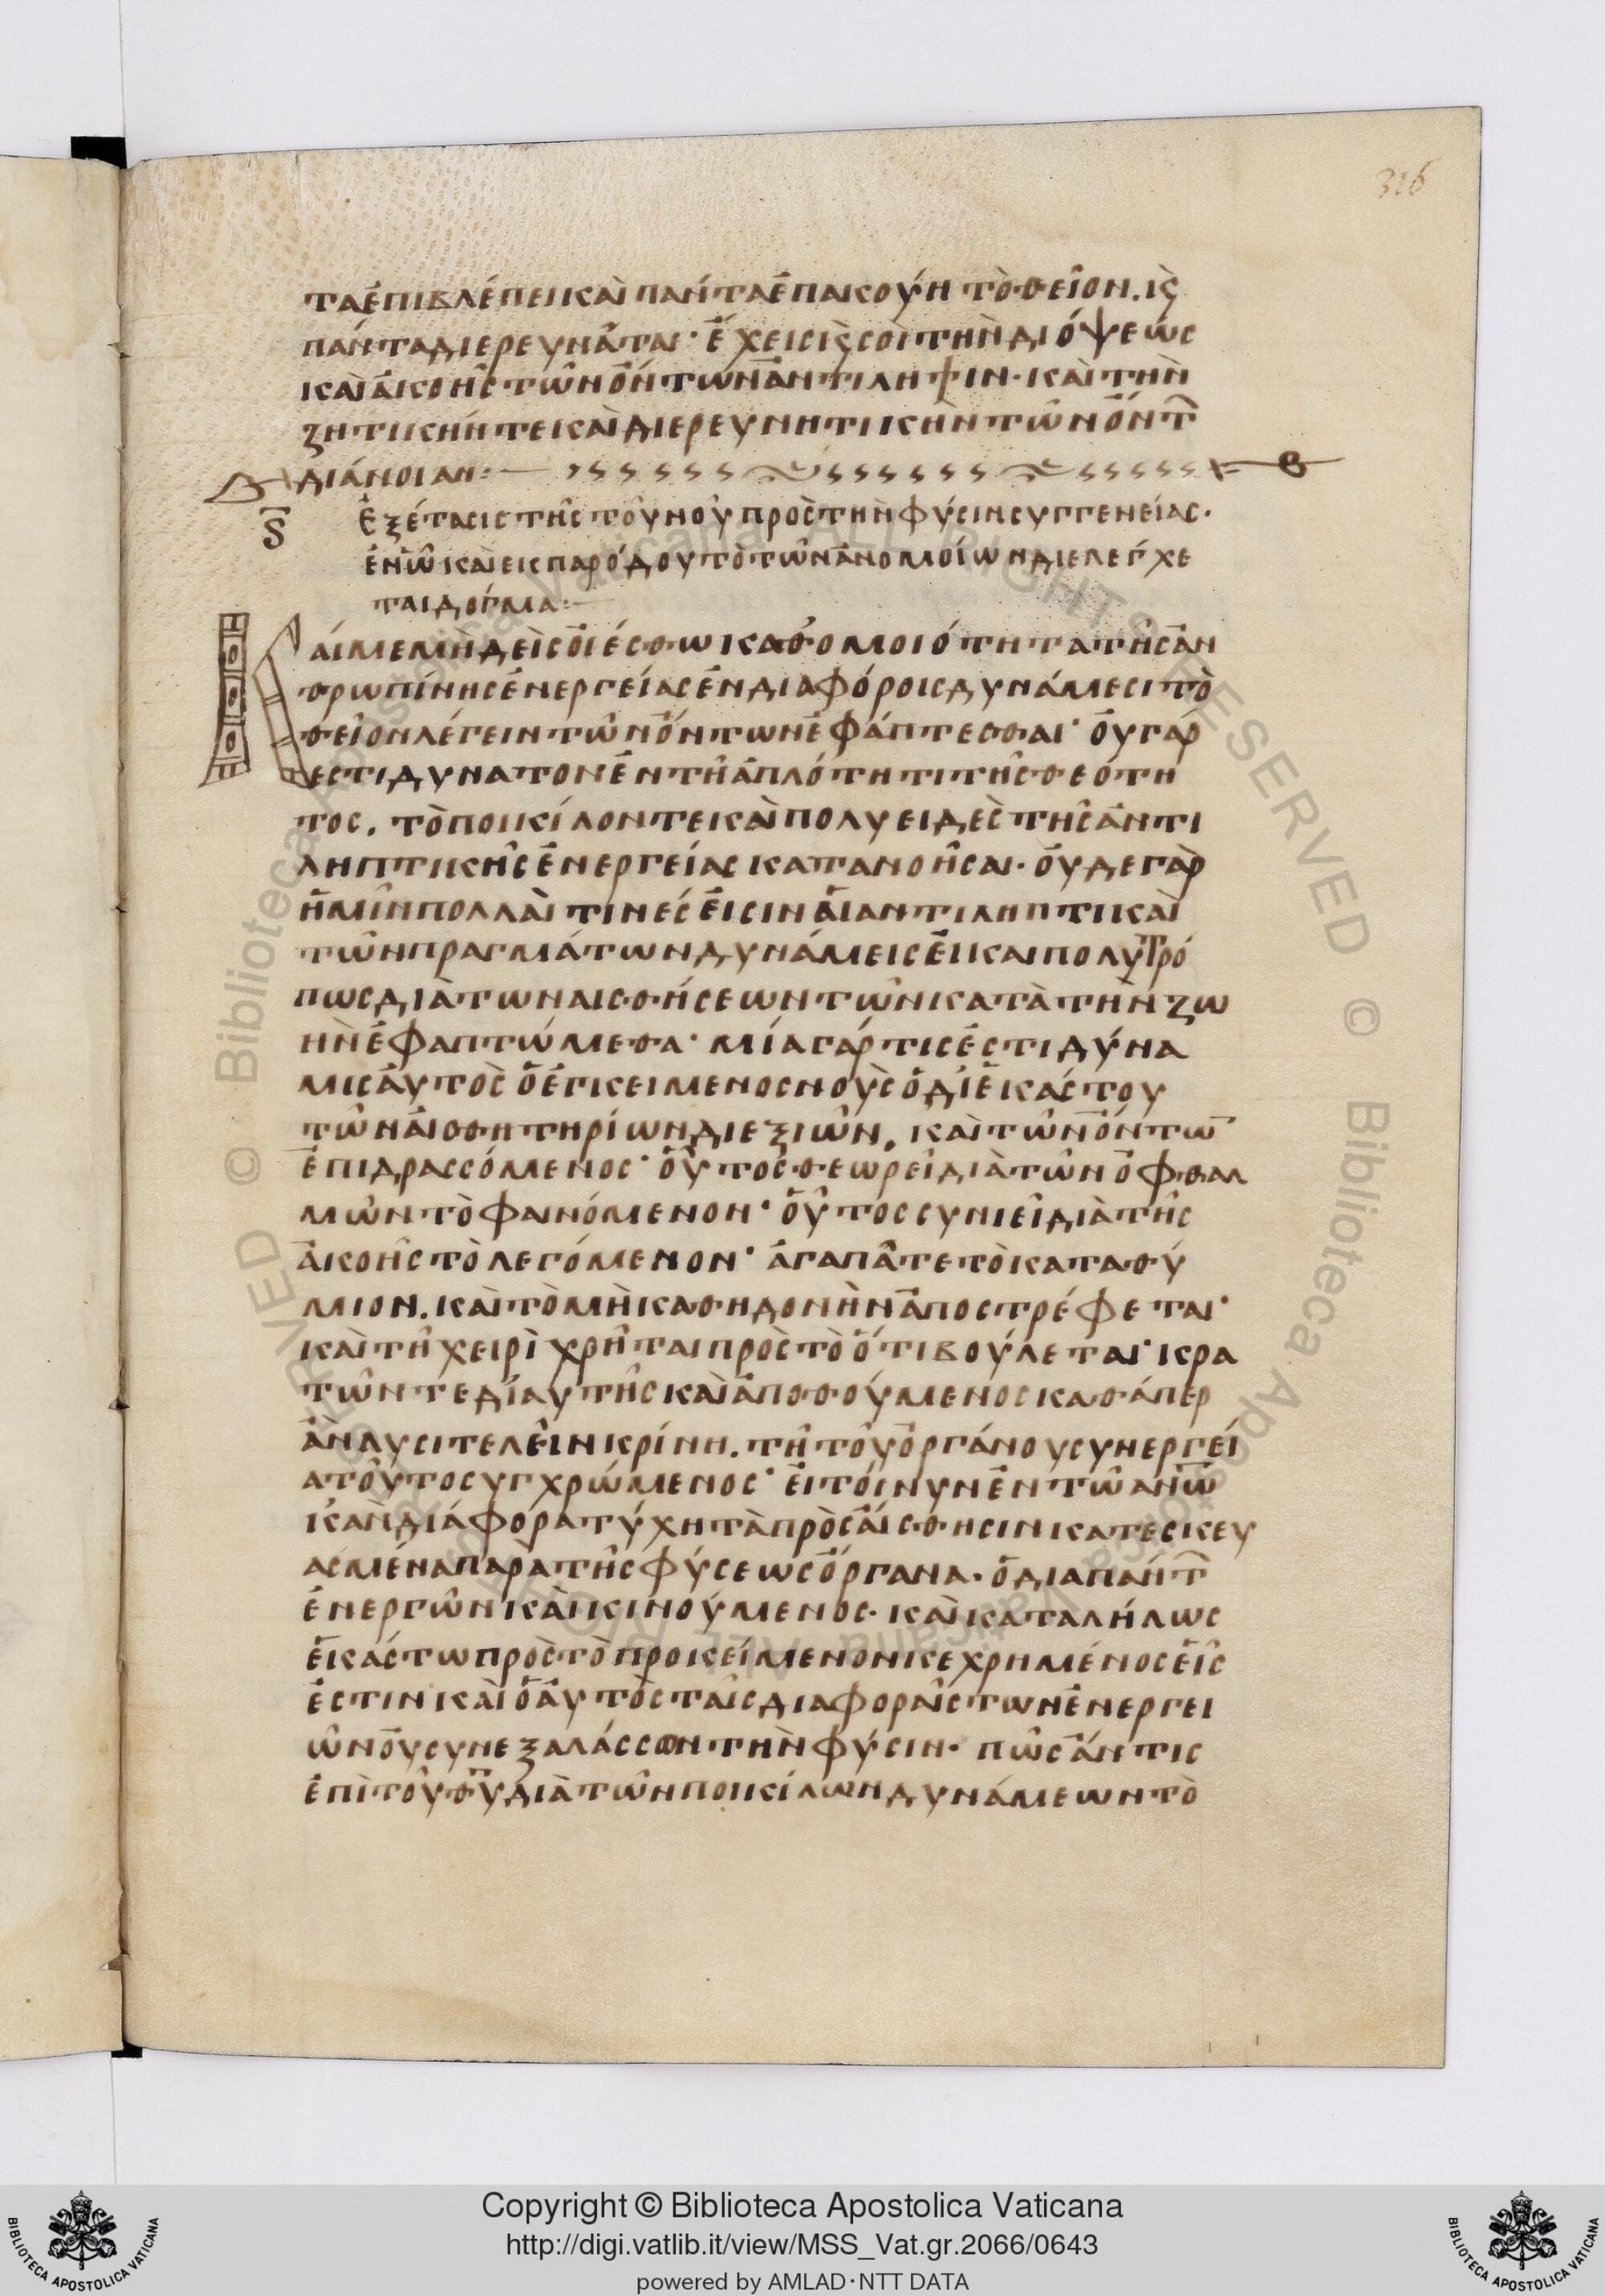 316
ταἐπιβλέπει καὶ πάντα ἐπακούη τὸ θεῖον. κ(αὶ)
πάντα διερευνᾶται· ἔχεις κ(αὶ) σοὶ τὴν δι ὄψεώς
καὶ ἀκοῆς τῶν ὄντων ἀντιληψιν· καὶ τὴν
ζητικήν τε καὶ διερευνητικὴν τῶν ὄντ
διάνοιαν:
ς Ἐξέτασις τῆς τοῦ νοῦ πρὸς τὴν φύσιν συγγενείας·
ἐν ὧ καὶ εκ παρόδου τὸ τῶν ἀνομοίων διελεγχε
ται δογμα:
Καί με μὴδεὶς οἰέσθω καθομοιότητα τῆς ἀν
θρωπίνης ἐνεργείας ἐν διαφόροις δυνάμεσι τὸ
θεῖον λέγειν τῶν ὄντων ἐφάπτεσθαι· οὐ γάρ
εστι δυνατον ἐν τῆ ἁπλότητι τῆς θεότη
τος. τὸ ποικίλον τε καὶ πολυειδὲς τῆς ἀντι
ληπτικῆς ἐνεργείας κατανοῆσαι· οὐδε γὰρ
ἡμῖν πολλαὶ τινές εἰσιν αἱ αντιληπτικαὶ
τῶν πραγμάτων δυνάμεις εἰ και πολυτρό
πως διὰ των αισθήσεων τῶν κατὰ τὴν ζω
ὴν ἐφαπτώμεθα· μία γάρ τις ἐστι δύνα
μις ἀυτὸς ὁ ἐγκειμενος νοῦς ὁ δι ἑκάστου
τῶν αἰσθητηρίων διεξιῶν. καὶ τῶν ὄντω
ἐπιδρασσόμενος· οὗτος θεωρεῖ διὰ τῶν ὀφθαλ
μῶν τὸ φαινόμενον· οὗτος συνιεῖ διὰ τῆς
ἀκοῆς τὸ λεγόμενον· ἀγαπᾶ τε τὸ καταθύ
μιον. καὶ τὸ μὴ καθηδονὴν ἀποστρέφεται·
καὶ τῆ χειρὶ χρῆται πρὸς τὸ ὅτι βούλεται· κρα
τῶν τε δι αυτῆς καὶ ἀποθούμενος καθάπερ
ἀν λυσιτελεῖν κρίνη. τῆ τοῦ ὀργάνου συνεργεί
α τοῦτο συγχρώμενος· εἰ τόινυν ἐν τῶ ανω
κὰν διάφορα τύχη τὰ πρὸς αἴσθησιν κατεσκευ
ασμένα παρα τῆς φύσεως ὄργανα· ὁ δια πάντ
ἐνεργῶν καὶ κινούμενος· καὶ καταλήλως
ἑκάστω πρὸς τὸ προκείμενον κεχρημένος εἷς
ἐστιν καὶ ὁ ἀυτὸς ταῖς διαφοραῖς των ἐνεργει
ῶν οὐ συνεξαλάσσων τὴν φύσιν· πῶς ἄν τις
ἐπὶ τοῦ θυ διὰ τῶν ποικίλων δυνάμεων τὸ
Copyright © Biblioteca Apostolica Vaticana
http://digi.vatlib.it/view/MSS_Vat.gr.2066/0643
powered by AMLAD·NTT DATA
BIBLIOTECA APOSTOLICA VATICANA
BIBLIOTECA APOSTOLICA VATICANA